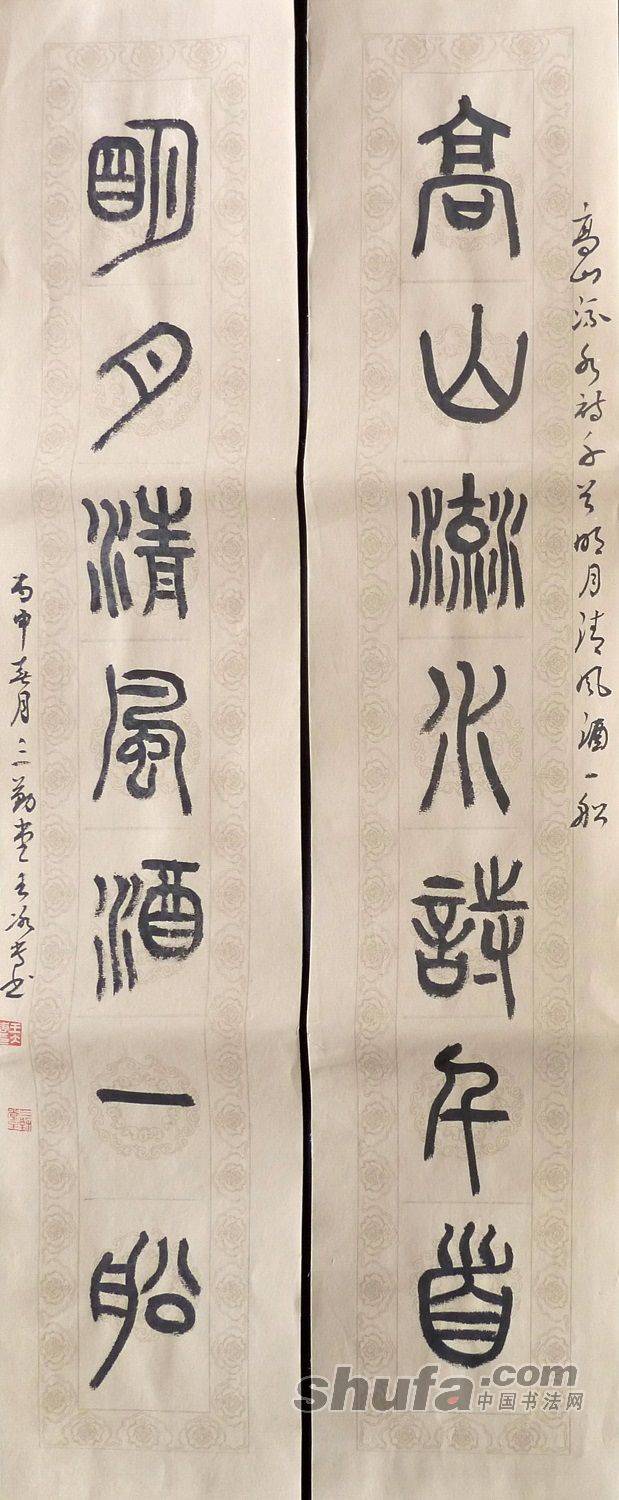 高山流水詩千首
明月清風酒一船
高山流水詩千首明月清風酒一船
丙申春月三勤堂王
shufa.com
中国书法网